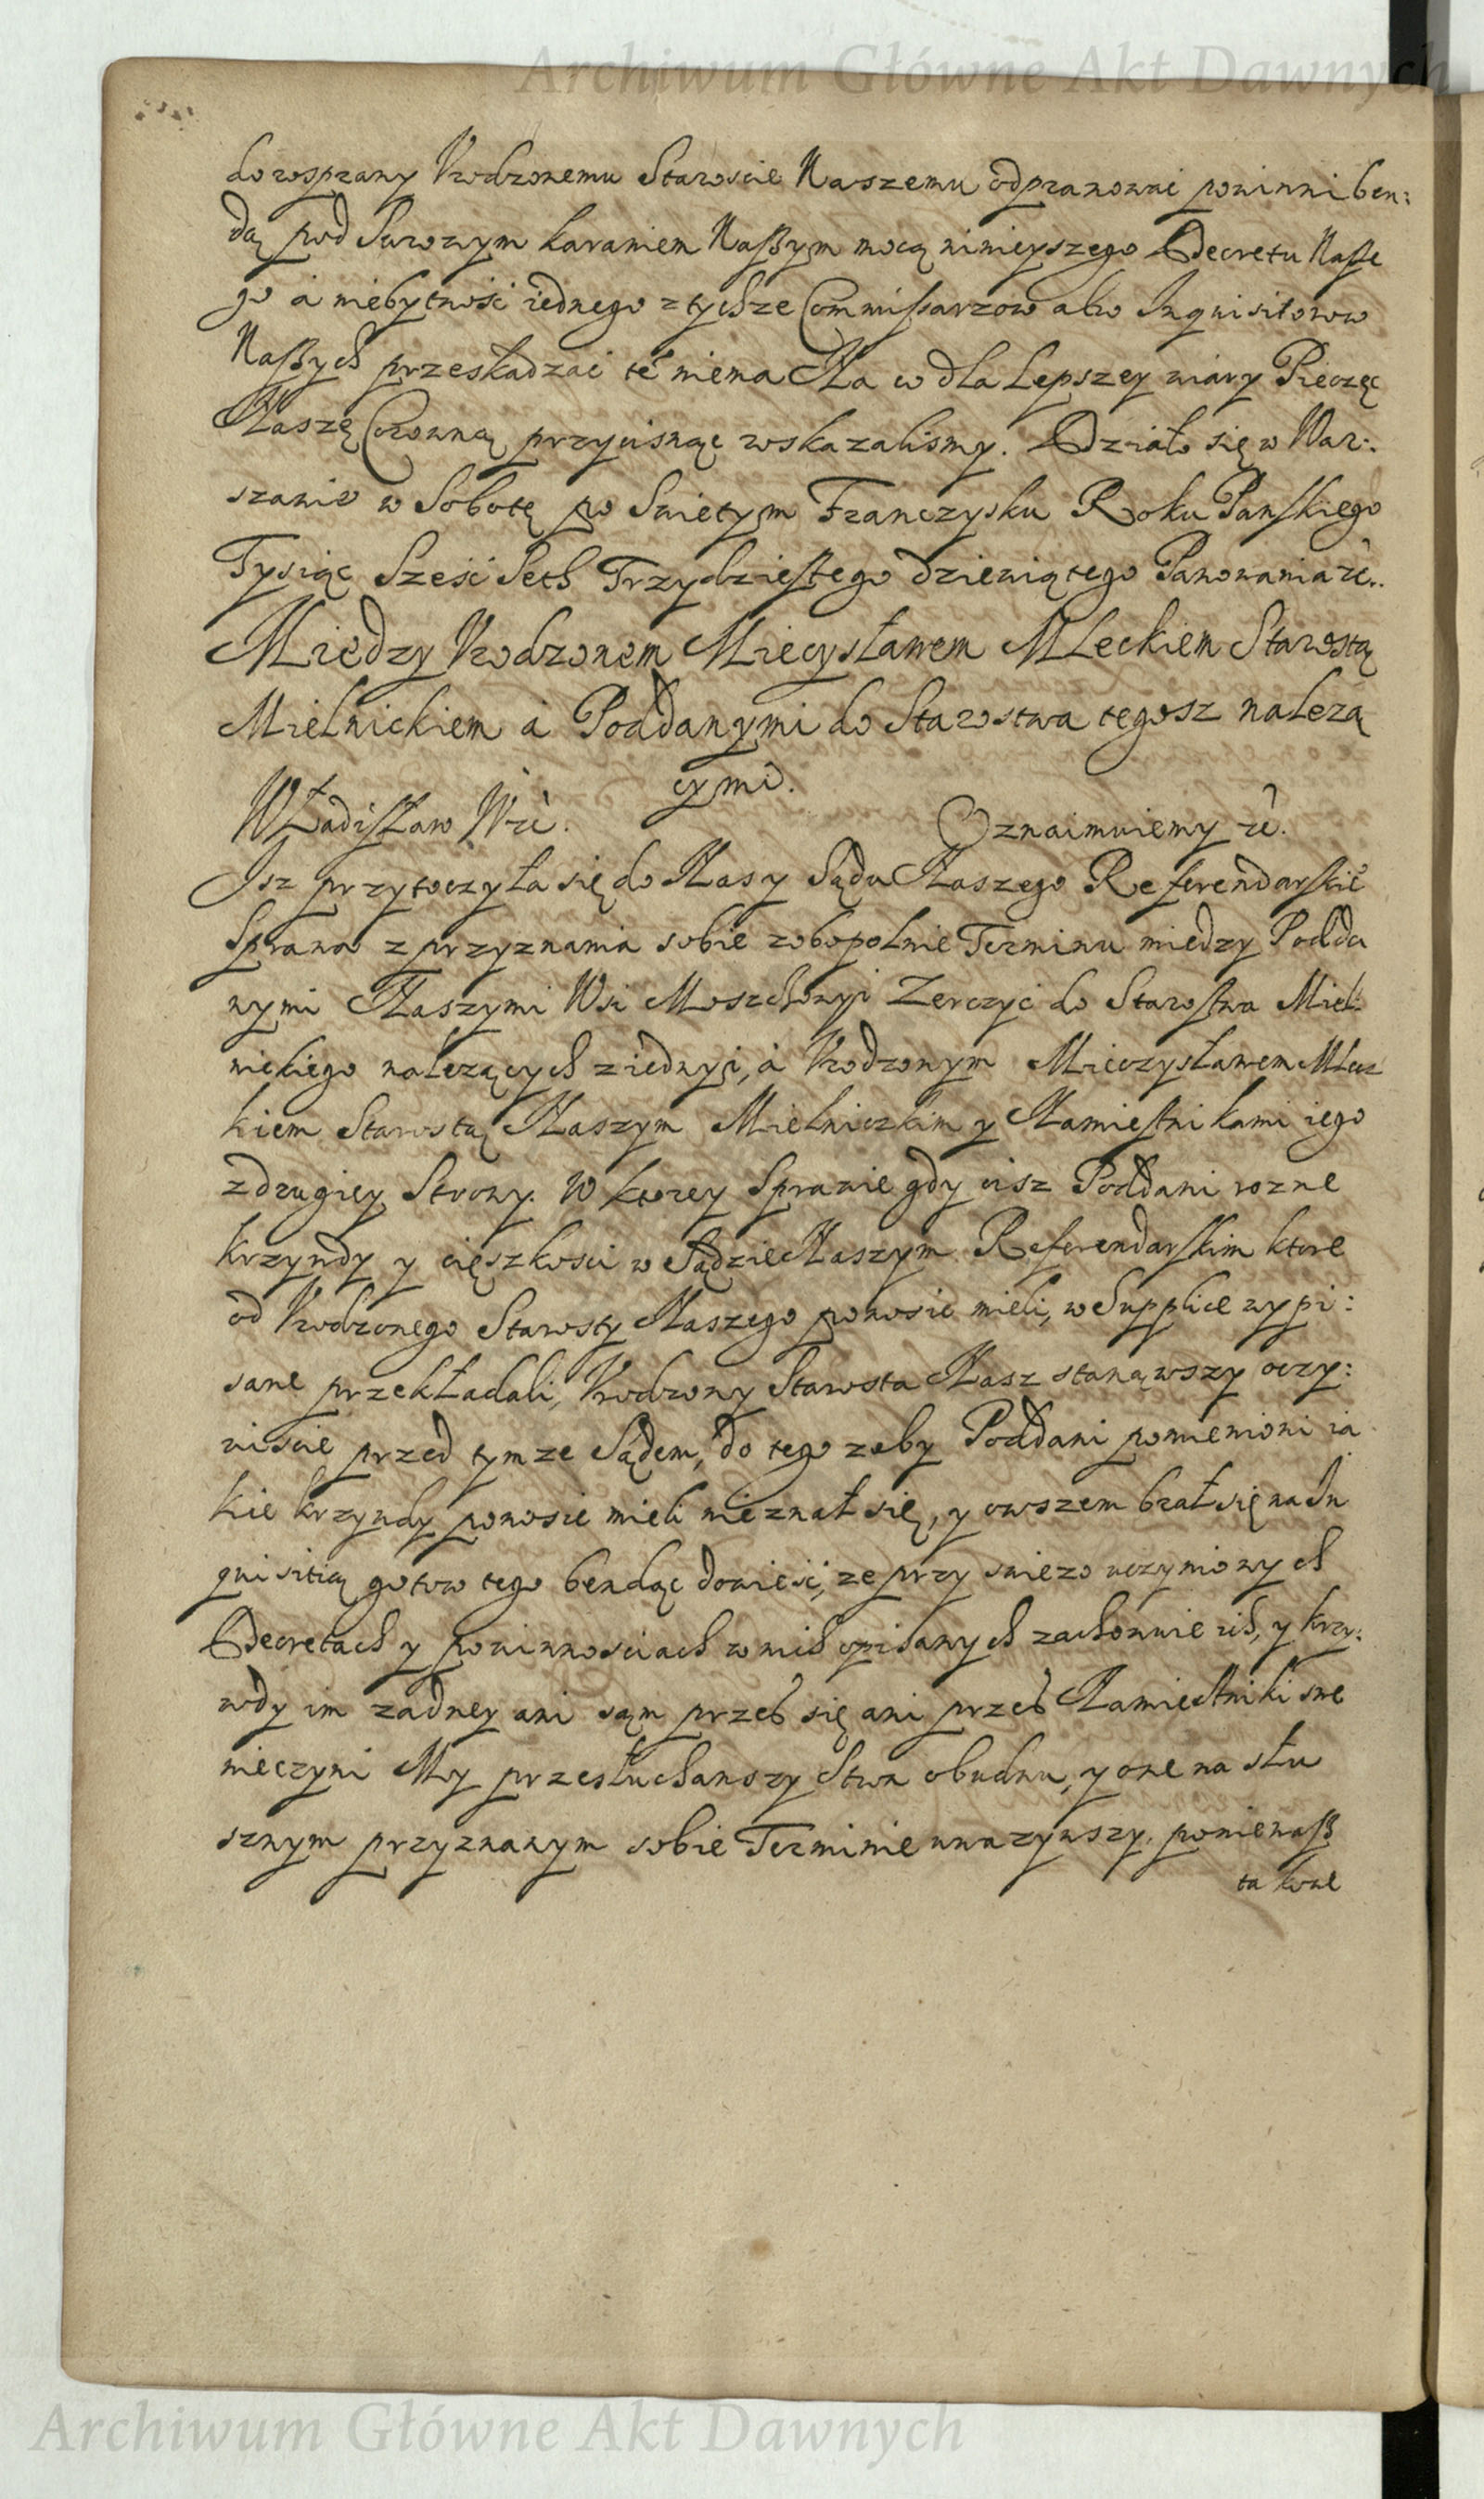 Archiwum Główne Akt Dawnych
do rosprawy Vrodzonemu Staroscie Naszemu odprawowac powinni ben:
dą pod Surowym karaniem Naßym mocą ninieyszego Decretu Naße
go á niebytność iednego z tychze Commissarzow abo Inquisitorow
Naßych przeskadzać te niema Na co dla Lepszey wiary Pieczęc
Naszę Coronną przycisnąc wskazalismy. Działo się w War:
szawie w Sobotę po Swietym Franczysku Roku Panskiego
Tysiąc Sześć Seth Trzydziestego dziewiątego Panowania ѐc..
Miedzy Vrodzonem Miecysławem Mleckiem Starostą
Mielnickiem á Poddanymi do Starostwa tegosz nalezą
cymi.
Władisław IVѐc. Oznaimuiemy ѐc.
Isz przytoczyła się do Nas y Sądu Naszego Referendarskie
Sprawa z przyznania sobie zobopolnie Terminu miedzy Podda
nymi Naszymi Wsi Moszchonyi Zerczyc do Starostwa Miel:
nickiego nalezących z iednyi, á Vrodzonym Mieczysławem Mlecz
kiem Starostą Naszym Mielniczkim y Namiestnikami iego
z drugiey Strony. W ktorey Sprawie gdy cisz Poddani rozne
krzywdy y cięszkosci w Sądzie Naszym Referendarskim ktore
od Vrodzonego Starosty Naszego ponosic mieli, w Supplice wypi:
sane przekładali, Vrodzony Starosta Nasz stanąwszy oczy:
wiscie przed tymze Sądem, do tego zeby Poddani pomienioni ia
kie krzywdy ponosic mieli nieznał się, y owszem brał się na In
quisitią gotow tego bendąc dowieść, ze przy swiezo uczynionych
Decretach y powinnosciach w nich opisanych zachowuie ich, y krzy:
wdy im zadney ani sąm przeß się ani przeß Namiestniki swe
nieczyni My przesłuchawszy Stron obudwu, y one na słu
sznym przyznanym sobie Terminie uwazywszy, poniewaß
ta kone
Archiwum Główne Akt Dawnych